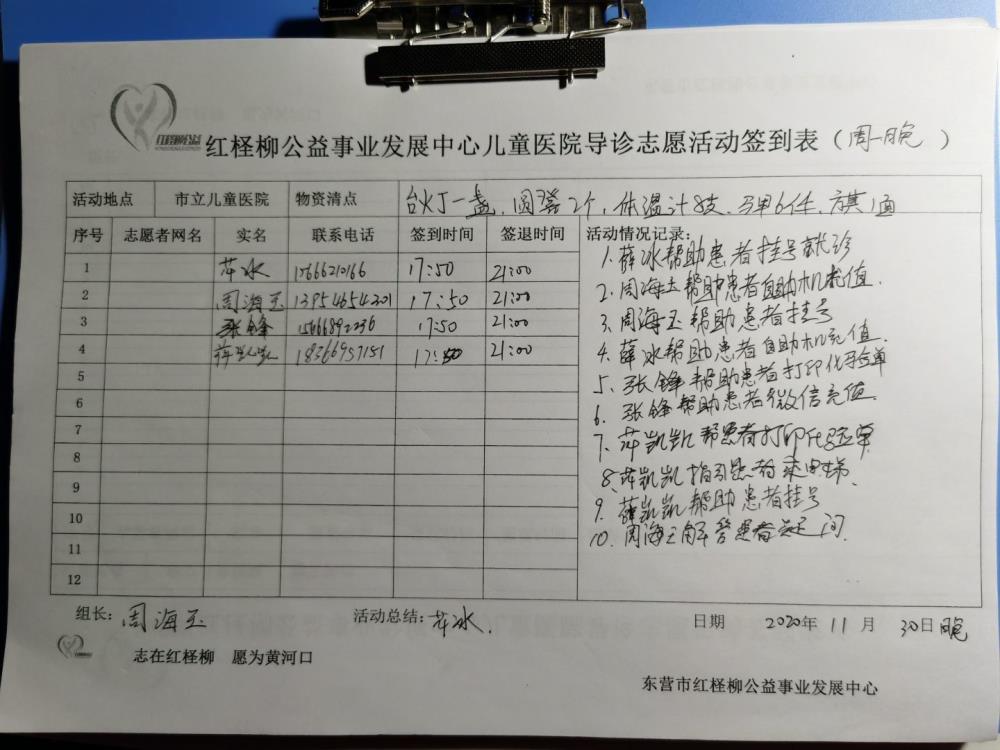 红柽柳公益事业发展中心儿童医院导诊志愿活动签到表（周一晚）
活动地点 市立儿童医院 物资清点 台灯一盏.圆凳2个,体温计8支.马甲6件.旗1面
序号 志愿者网名 实名 联系电话 签到时间 签退时间 活动情况记录:
1 薛冰 15666210166 17:50 21:00
2 周海玉 13954654201 17:50 21:00
3 张锋 17:50 21:00
4 薛凯凯 18366957151 17:50 21:00
5
6
7
8
9
10
11
12
1.薛冰帮助患者挂号就诊
2.周海玉帮助患者自助机充值.
3.周海玉帮助患者挂号
4.薛冰帮助患者自助机充值.
5.张锋帮助患者打印化验单
6.张锋帮助患者微信充值.
7.薛凯凯帮患者打印化验单
8.薛凯凯指引患者乘电梯.
9.薛凯凯帮助患者挂号
10.周海玉解答患者疑问.
组长:周海玉 活动总结:薛冰. 日期 2020年11月30日晚
志在红柽柳 愿为黄河口
东营市红柽柳公益事业发展中心